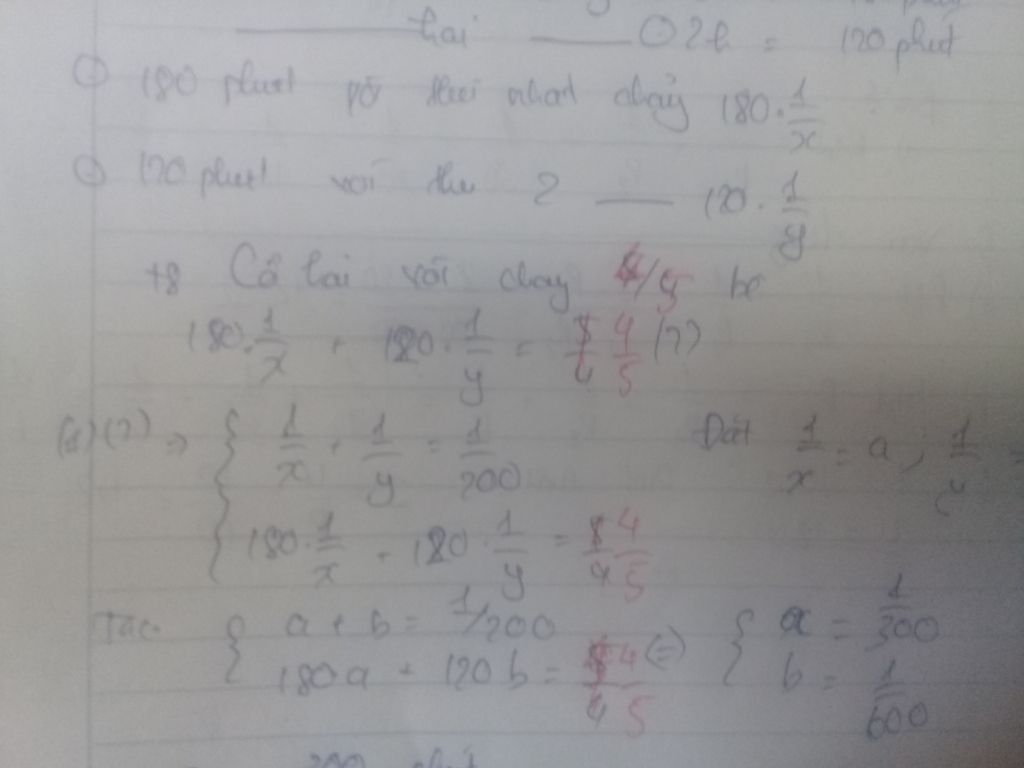 hai 2h = 120 phút
180 phút vòi thứ nhất chảy 180 · 1/x
120 phút vòi thứ 2 — 120 · 1/y
Cả hai vòi chảy 4/5 bể
180 · 1/x + 120 · 1/y = 4/5 (2)
(1)(2) ⇒ { 1/x + 1/y = 1/200 Đặt 1/x = a ; 1/y =
180 · 1/x + 120 · 1/y = 4/5
{ a + b = 1/200 { a = 1/300
180a + 120b = 4/5 (=) b = 1/600